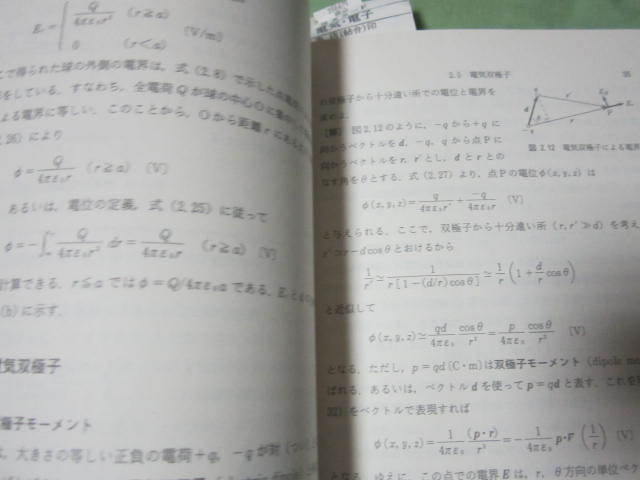 E_r = { Q/4πε₀r² (r≧a)
0 (r<a)
[V/m]
で得られた球の外側の電界は、式(2.8)で示した点電
をしている。すなわち、全電荷Qが球の中心Oに集
よる電界に等しい。このことから、Oから距離rにある
26)により
φ = Q/4πε₀r (r≧a) [V]
あるいは、電位の定義、式(2.25)に従って
φ = -∫ Q/4πε₀r² dr = Q/4πε₀r (r≧a) [V]
計算できる。r≦aではφ=Q/4πε₀aである。E
(b)に示す。
気双極子
極子モーメント
、大きさの等しい正負の電荷+q、-qが対
2.5 電気双極子
双極子から十分遠い所での電位と電界を
求めよ。
【解】 図2.12のように、-qから+qに
向かうベクトルをd、-q、qから点Pに
向かうベクトルをr、r'とし、dとrとの
なす角をθとする。式(2.27)より、点Pの電位φ(x,y,z)は
図2.12 電気双極子による電界
φ(x,y,z) = q/4πε₀r' + -q/4πε₀r [V]
と与えられる。ここで、双極子から十分遠い所(r,r'≫d)を考え
r'≃r-dcosθとおけるから
1/r' ≃ 1/r[1-(d/r)cosθ] ≃ 1/r(1+d/r cosθ)
と近似して
φ(x,y,z) ≃ qd/4πε₀ cosθ/r² = p/4πε₀ cosθ/r² [V]
となる。ただし、p=qd[C・m]は双極子モーメント(dipole
ばれる。あるいは、ベクトルdを使ってp=qdと表す。これ
32)をベクトルで表現すれば
φ(x,y,z) = 1/4πε₀ (p・r)/r³ = -1/4πε₀ p・∇(1/r) [V]
となる。ゆえに、この点での電界Eは、r、θ方向の単位ベ